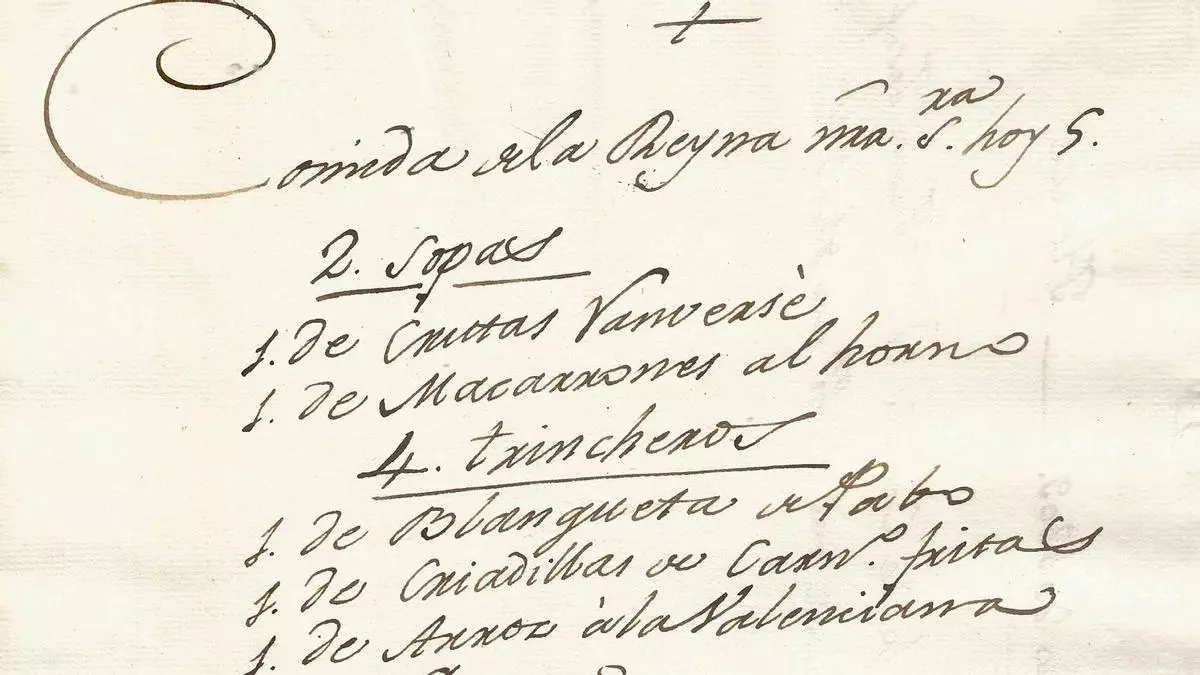 Comida de la Reyna nra. S.ra hoy 5.
2. sopas
1. de Cruttas Vanversè
1. de Macarrones al horno
4. trincheros
1. de Blangueta de Pabo
1. de Criadillas de Carn.º fritas
1. de Arroz à la Valenciana